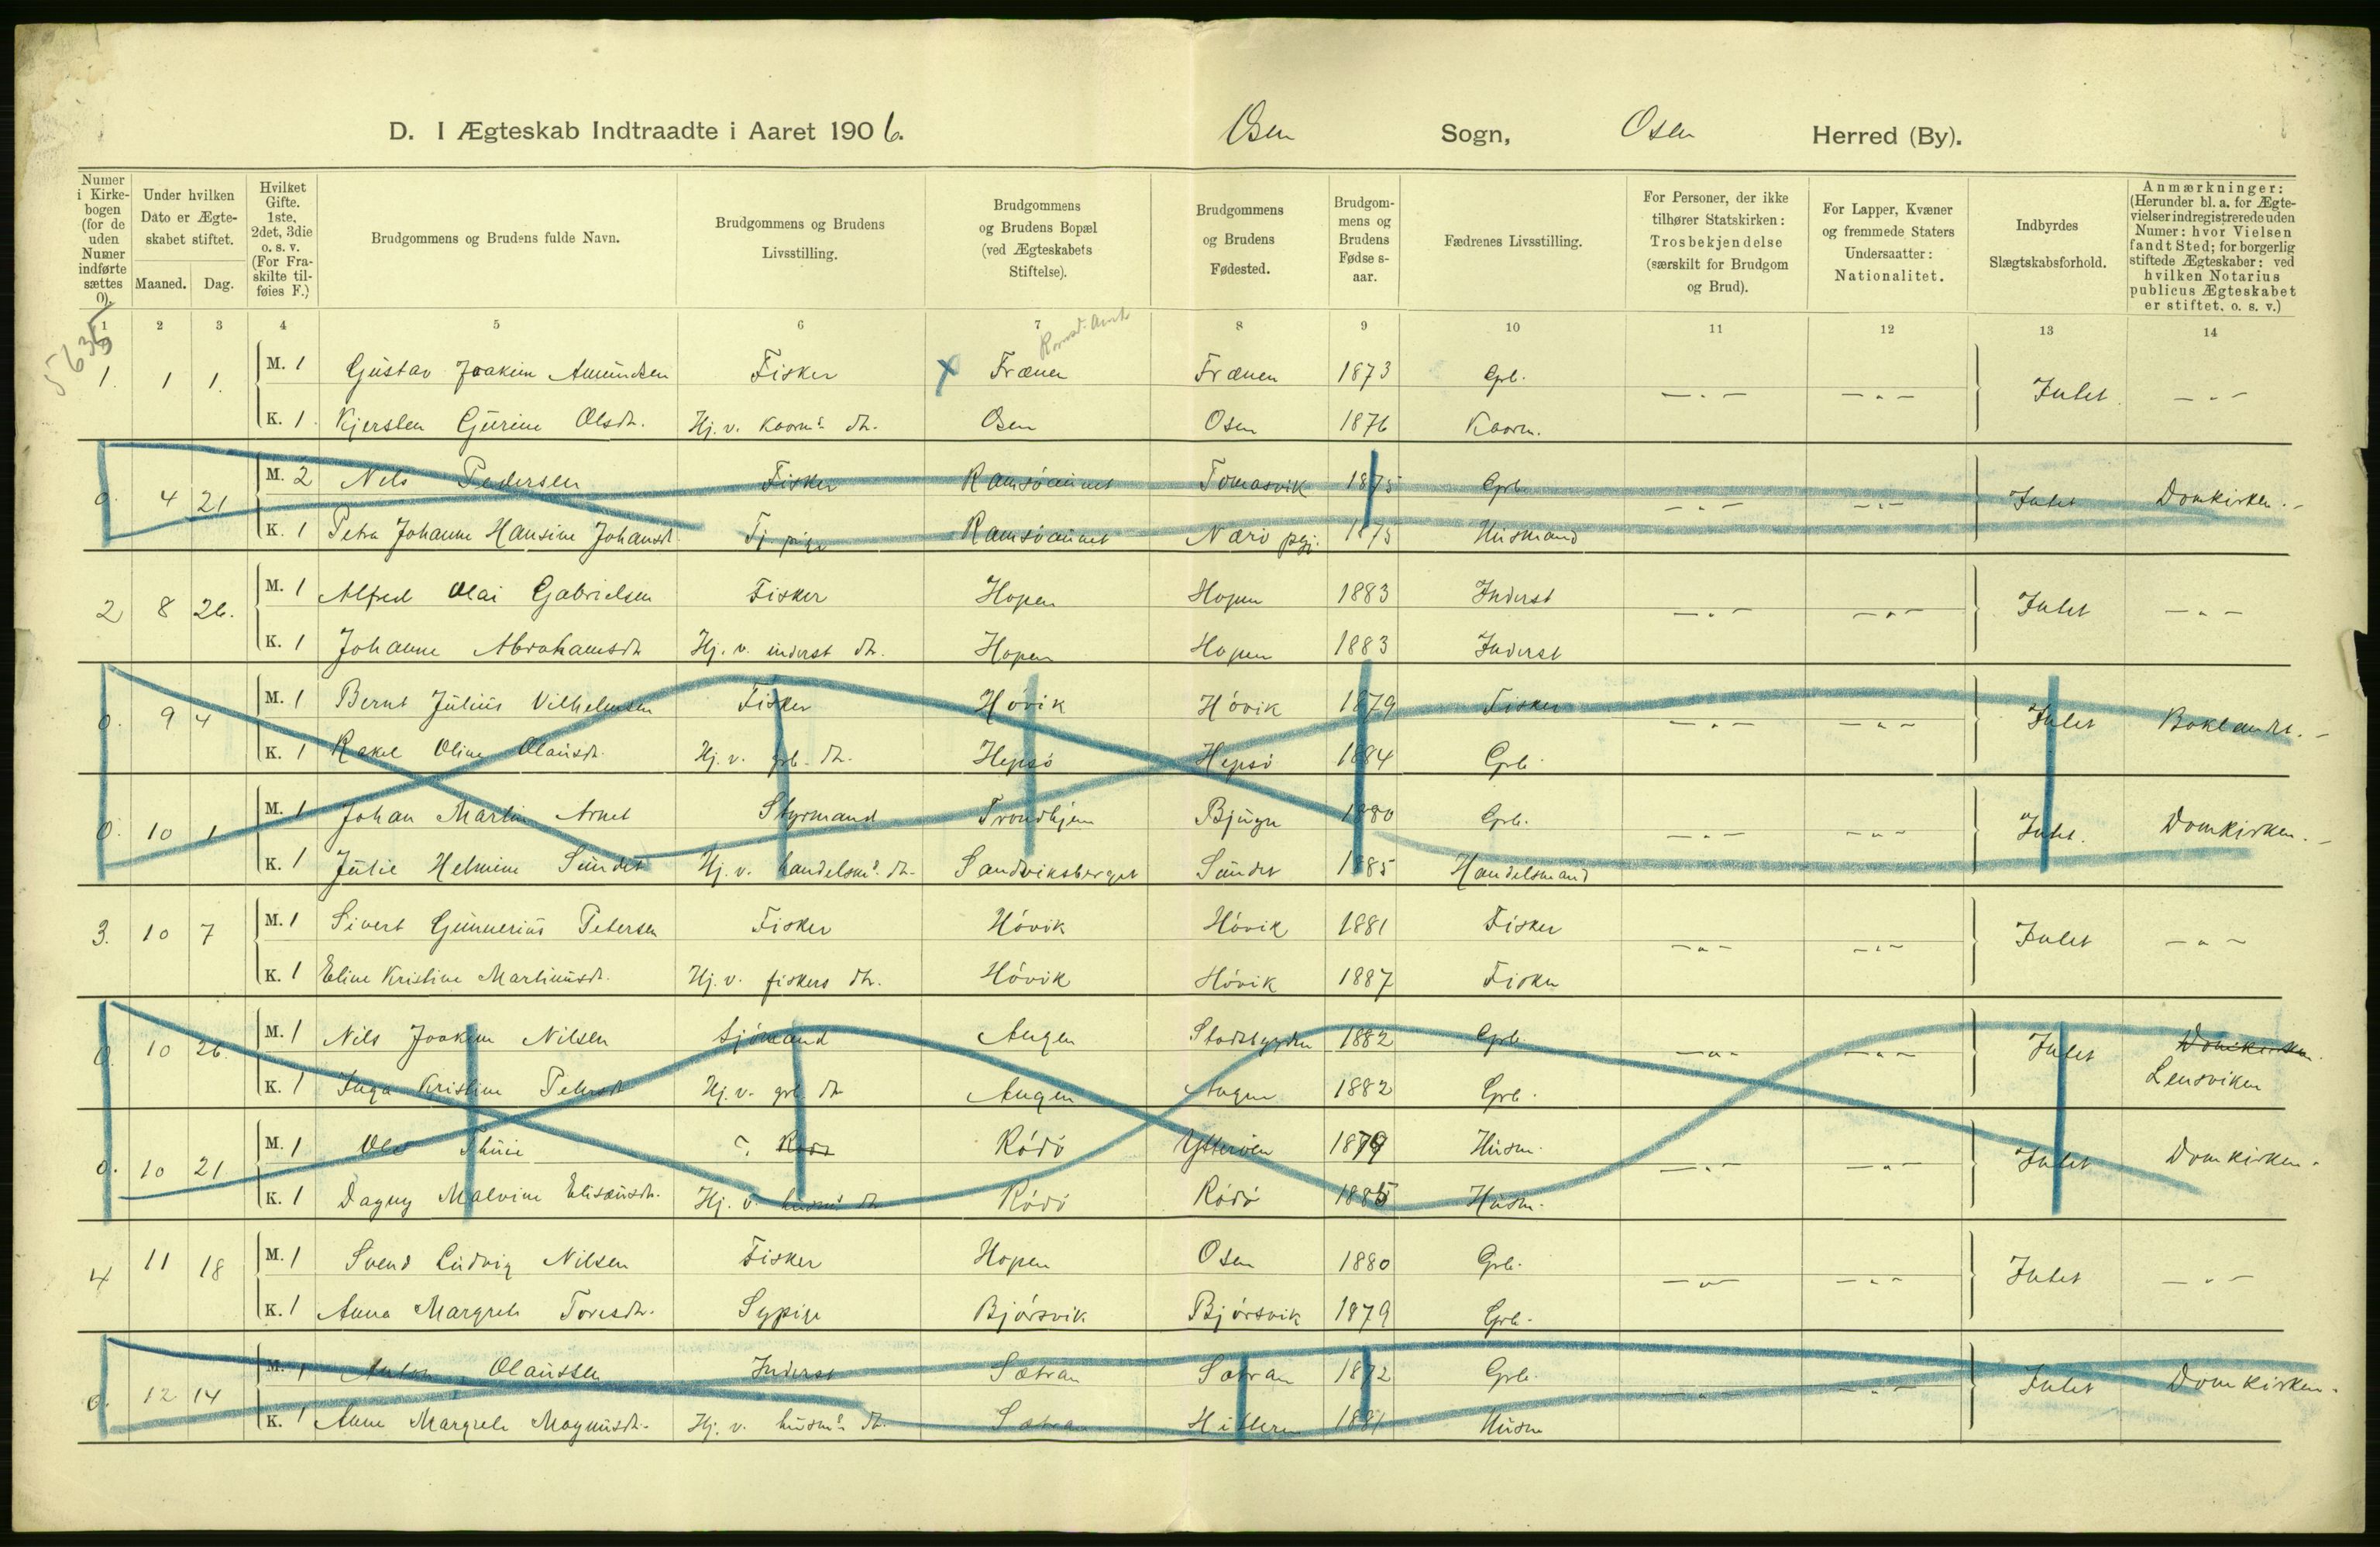 D. I Ægteskab Indtraadte i Aaret 1906. Osen Sogn, Osen Herred (By).
Numer i Kirke-bogen (for de uden Numer indførte sættes 0).
Under hvilken Dato er Ægte-skabet stiftet.
Maaned. Dag.
Hvilket Gifte. 1ste, 2det, 3die o. s. v. (For Fra-skilte til-føies F.)
Brudgommens og Brudens fulde Navn.
Brudgommens og Brudens Livsstilling.
Brudgommens og Brudens Bopæl (ved Ægteskabets Stiftelse).
Brudgommens og Brudens Fødested.
Brudgom-mens og Brudens Fødse s-aar.
Fædrenes Livsstilling.
For Personer, der ikke tilhører Statskirken: Trosbekjendelse (særskilt for Brudgom og Brud).
For Lapper, Kvæner og fremmede Staters Undersaatter: Nationalitet.
Indbyrdes Slægtskabsforhold.
Anmærkninger: (Herunder bl. a. for Ægte-vielser indregistrerede uden Numer: hvor Vielsen fandt Sted; for borgerlig stiftede Ægteskaber: ved hvilken Notarius publicus Ægteskabet er stiftet, o. s. v.)
1 2 3 4 5 6 7 8 9 10 11 12 13 14
5635
Romsd. Amt
1. 1 1. M. 1 Gustav Joakim Amundsen Fisker x Frænen Frænen 1873 Grb. — " — — " — Intet — " —
K. 1. Kjersten Gurine Olsdtr. Hj. v. kaarms dtr. Osen Osen 1876 Kaarm.
0. 4 21 M. 2 Nels Pedersen Fisker Ramsøaunet Tomasvik 1875 Grb. — " — — " — Intet Domkirken. -
K. 1 Petra Johanne Hansine Johansdt. Tj. pige Ramsøaunet Nærø pgj. 1875 Husmand
2 8 26. M. 1 Alfred Olai Gabrielsen Fisker Hopen Hopen 1883 Inderst — " — — " — Intet — " —
K. 1 Johanne Abrahamsdtr Hj. v. inderst dtr. Hopen Hopen 1883 Inderst
0. 9 4 M. 1 Bernt Julius Vilhelmsen Fisker Høvik Høvik 1879 Fisker — " — — " — Intet Boklandet. -
K. 1 Rakel Oline Olausdtr. Hj. v. grb. dtr. Hepsø Hepsø 1884 Grb.
0. 10 1 M. 1 Johan Martin Arnet Styrmand Trondhjem Bjugn 1880 Grb. — " — — " — Intet. Domkirken. -
K. 1 Julie Helmine Sundet Hj. v. handelsms. dtr. Sandviksberget Sundet 1885 Handelsmand
3. 10 7 M. 1 Sivert Gunnerius Petersen Fisker Høvik Høvik 1881 Fisker — " — — " — Intet — " —
K. 1 Eline Kristine Martinusdt. Hj. v. fiskers dtr. Høvik Høvik 1887 Fisker
0. 10 26. M. 1 Nils Joakim Nilsen Sjømand Angen Stadsbygden 1882 Grb. — " — — " — Intet Domkirken.
K. 1 Inga Kristine Petersdt. Hj. v. grb. dtr Angen Angen 1882 Grb. Lensviken
0. 10 21 M. 1 Ole ?. Rødø Ytterøen 1879 Husm. — " — — " — Intet Domkirken.
K. 1 Dagny Malvine Elisæusdt. Hj. v. husms dtr Rødø Rødø 1885 Husm.
4 11 18 M. 1 Svend Ludvig Nilsen Fisker Hopen Osen 1880 Grb. — " — — " — Intet — " —
K. 1 Anna Margrete Toresdtr. Sypige Bjørsvik Bjørsvik 1879 Grb.
0. 12 14 M. 1 Anton Olaussen Inderst Sætran Sætran 1872 Grb. — " — — " — Intet Domkirken.
K. 1 Anne Margrete Magnusdt. Hj. v. husms dtr. Sætran Hitteren 1881 Husm